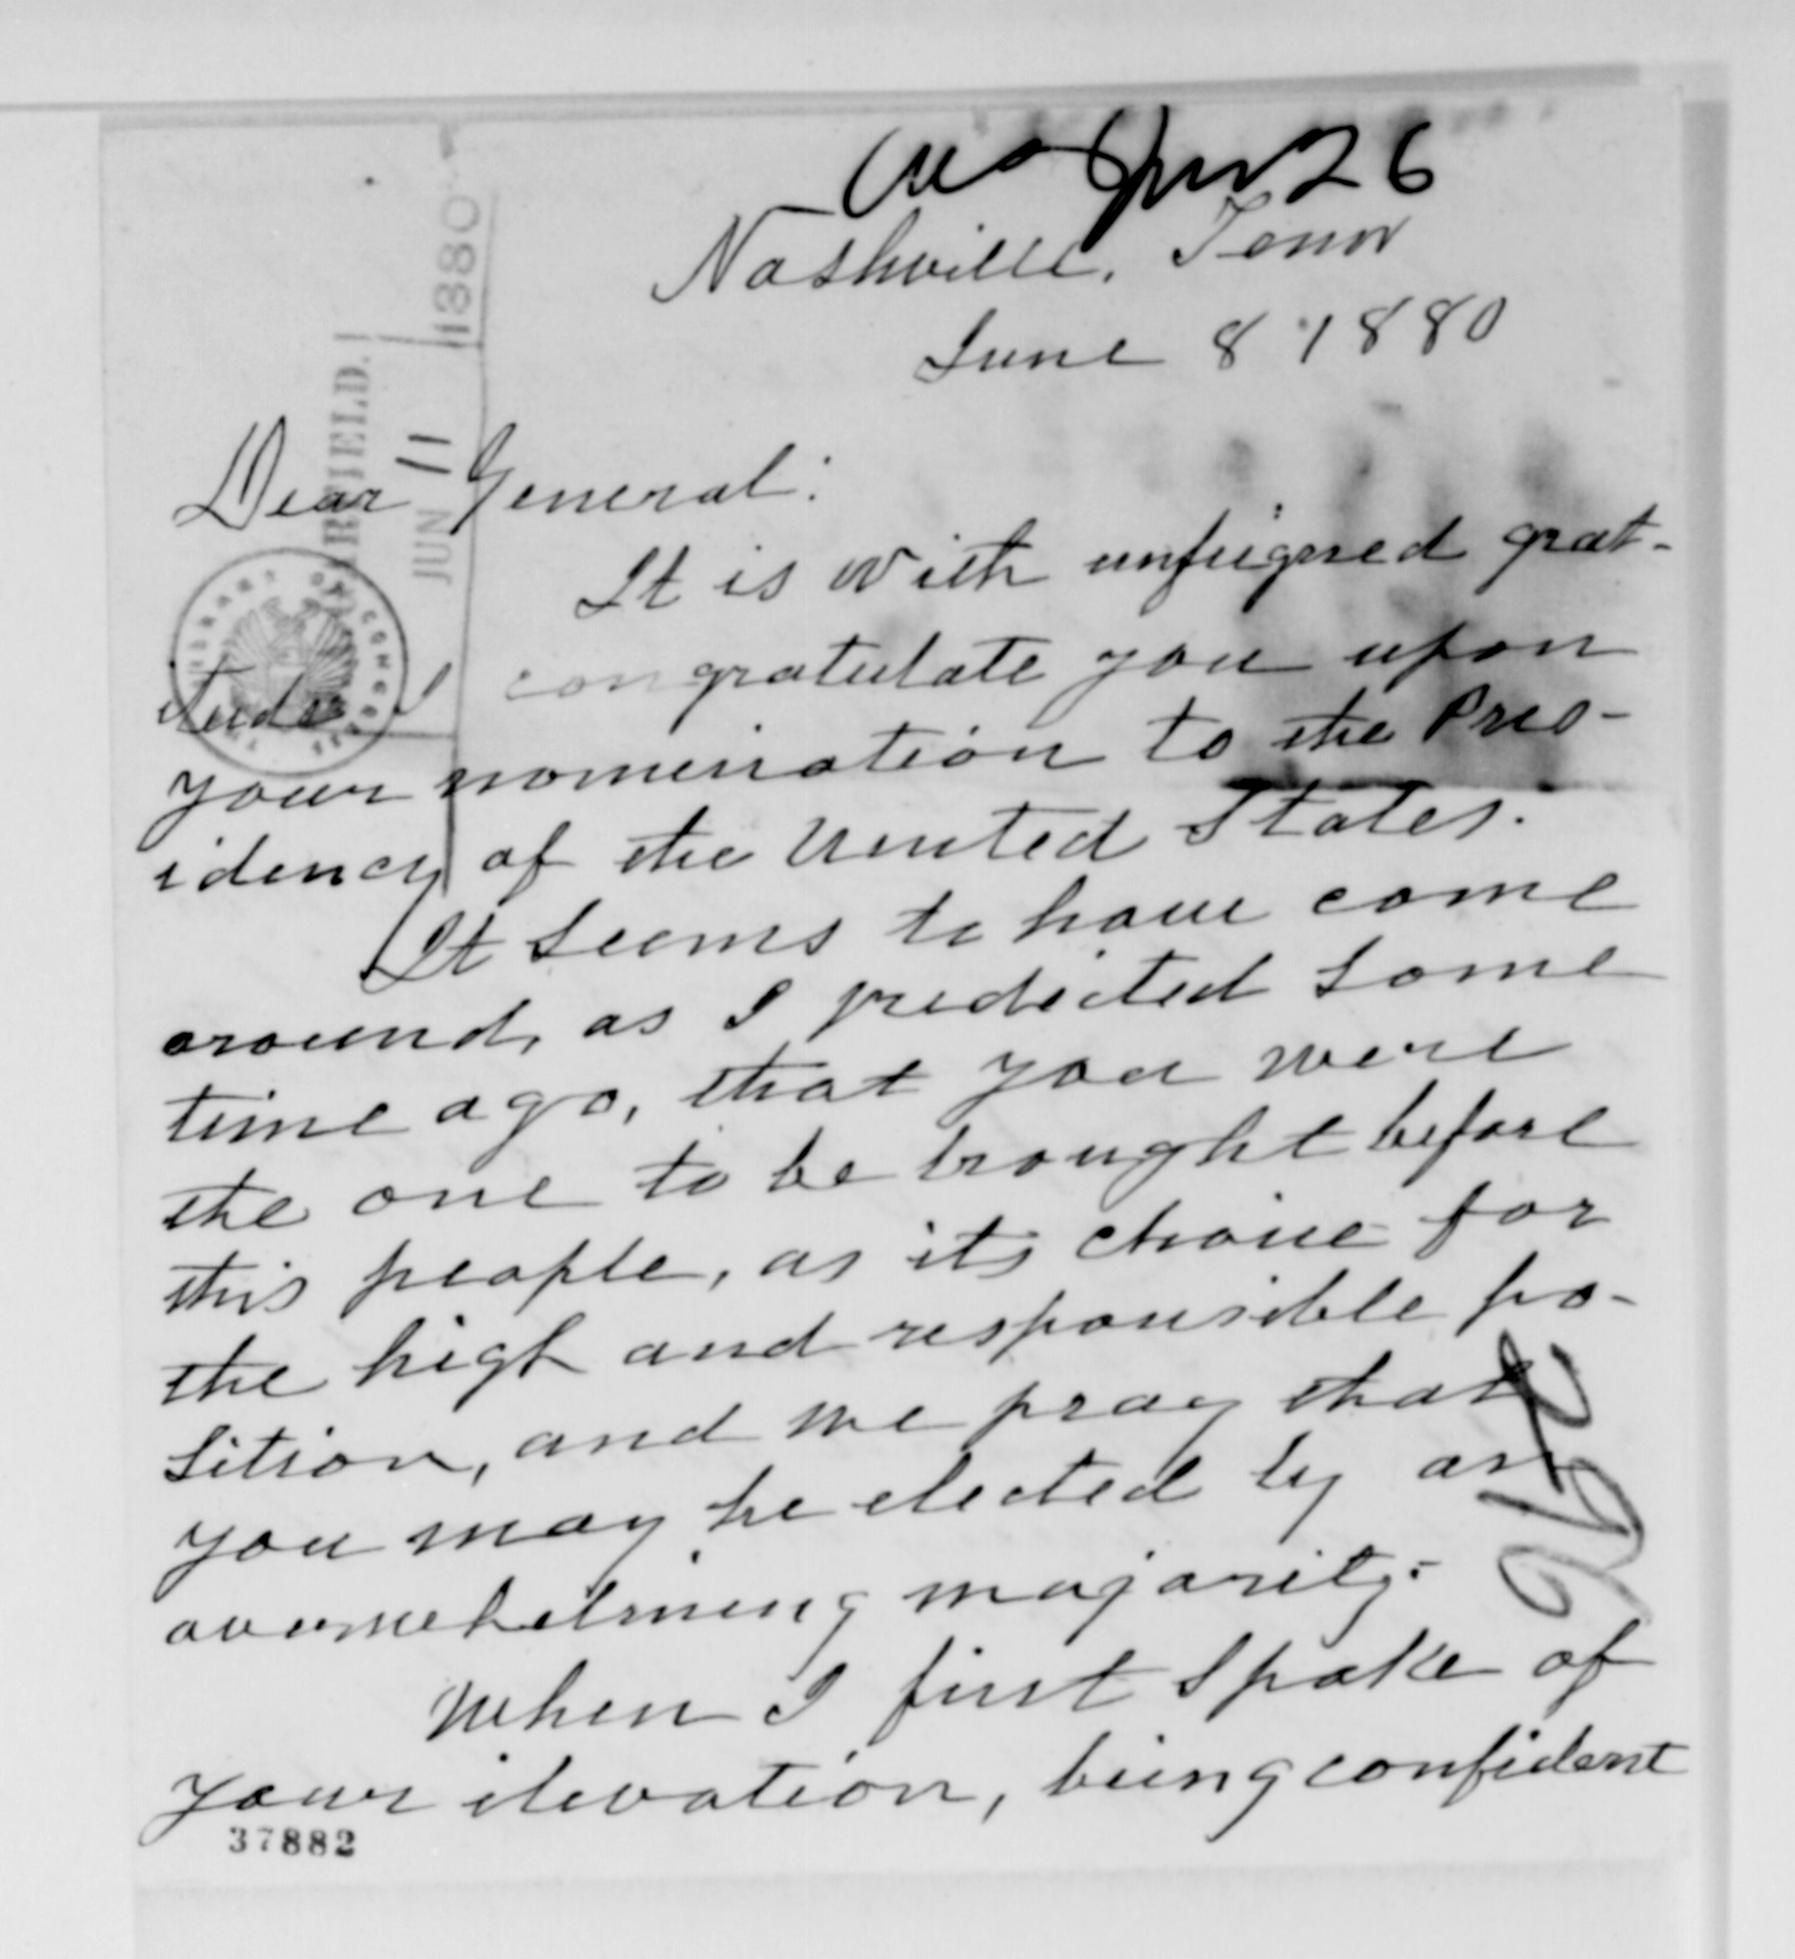 Ans Jun 26
Nashville, Tenn
June 8 1880
GARFIELD.
JUN 11 1880
Dear General:
LIBRARY OF CONGRESS
It is with unfeigned grat-
itude I congratulate you upon
your nomination to the Pres-
idency of the United States.
It seems to have come
around, as I predicted some
time ago, that you were
the one to be brought before
this people, as its choice for
the high and responsible po-
sition, and we pray that
you may be elected by an
overwhelming majority.
When I first spoke of
your elevation, being confident
37882